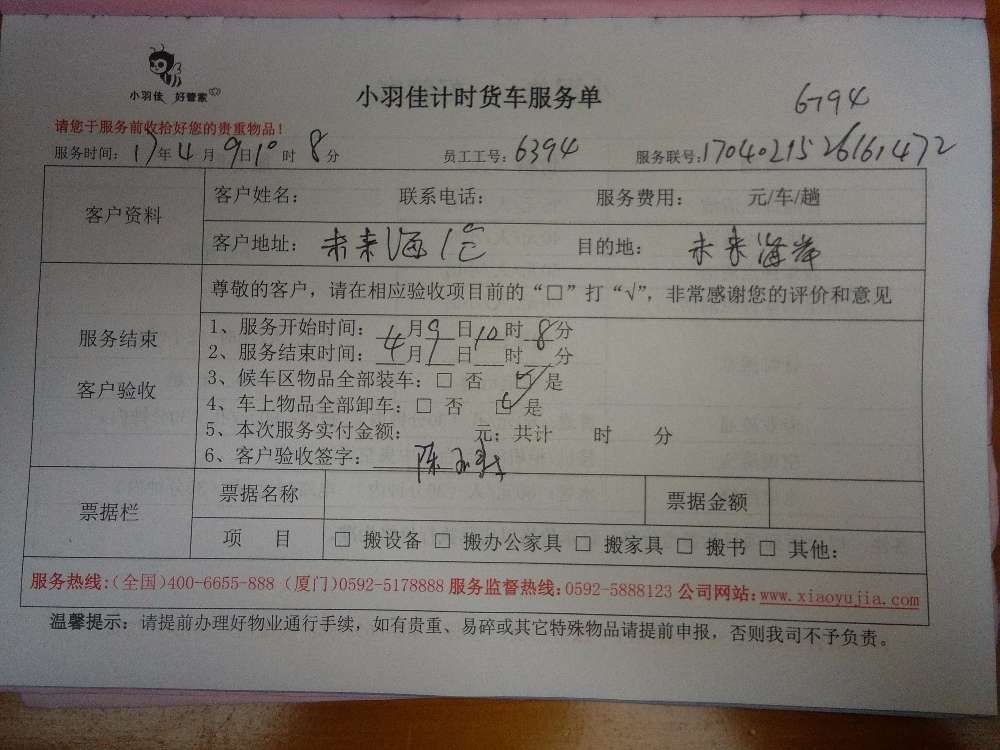 小羽佳 好管家
小羽佳计时货车服务单
6794
请您于服务前收拾好您的贵重物品！
服务时间：17年4月9日10时8分 员工工号：6394 服务联号：1704021526161472
客户资料
客户姓名： 联系电话： 服务费用： 元/车/趟
客户地址：未来海 目的地：未来海岸
服务结束
客户验收
尊敬的客户，请在相应验收项目前的“□”打“√”，非常感谢您的评价和意见
1、服务开始时间：4月9日10时8分
2、服务结束时间： 月9日 时 分
3、候车区物品全部装车：□ 否 ☑ 是
4、车上物品全部卸车：□ 否 ☑ 是
5、本次服务实付金额： 元；共计 时 分
6、客户验收签字：陈
票据栏
票据名称 票据金额
项 目 □ 搬设备 □ 搬办公家具 □ 搬家具 □ 搬书 □ 其他：
服务热线：(全国)400-6655-888 (厦门)0592-5178888 服务监督热线：0592-5888123 公司网站：www.xiaoyujia.com
温馨提示：请提前办理好物业通行手续，如有贵重、易碎或其它特殊物品请提前申报，否则我司不予负责。